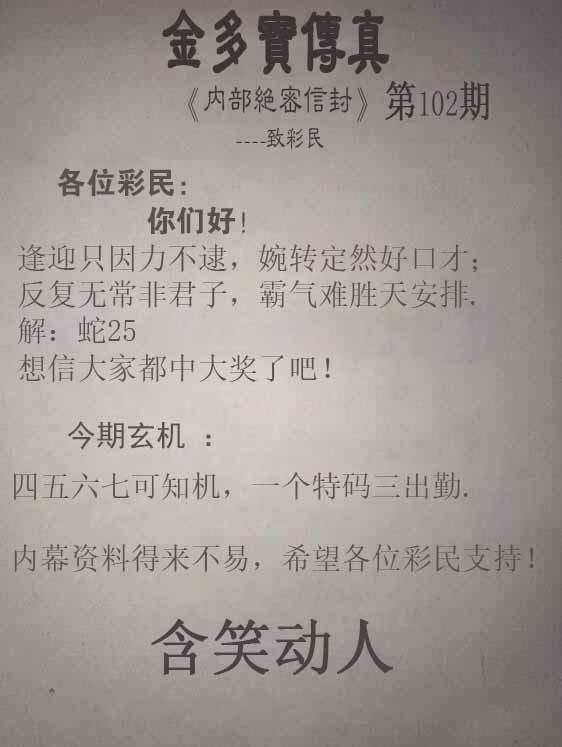 金多寶傳真
《内部絶密信封》第102期
----致彩民
各位彩民:
你们好!
逢迎只因力不逮，婉转定然好口才；
反复无常非君子，霸气难胜天安排.
解：蛇25
想信大家都中大奖了吧！
今期玄机 ：
四五六七可知机，一个特码三出勤.
内幕资料得来不易，希望各位彩民支持！
含笑动人